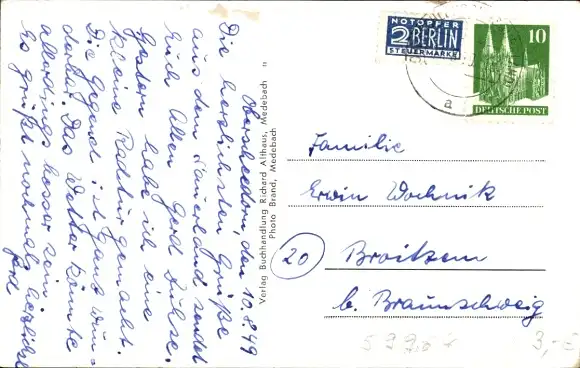 Oberschledorn, den 10.8.49
Die herzlichsten Grüße
aus dem Sauerland sendet
Euch Allen Gerd Dukse.
Gestern habe ich eine
kleine Radtur gemacht.
Die Gegend ist ganz wun-
derbar. Das Wetter könnte
allerdings besser sein.
Es grüßt nochmals herzlichst
Gerd
Verlag Buchhandlung Richard Althaus, Medebach
Photo Brand, Medebach
NOTOPFER
2 BERLIN
STEUERMARKE
10
DEUTSCHE POST
a
Familie
Erwin Wochnik
20
Broitzem
b. Braunschweig
3,-€